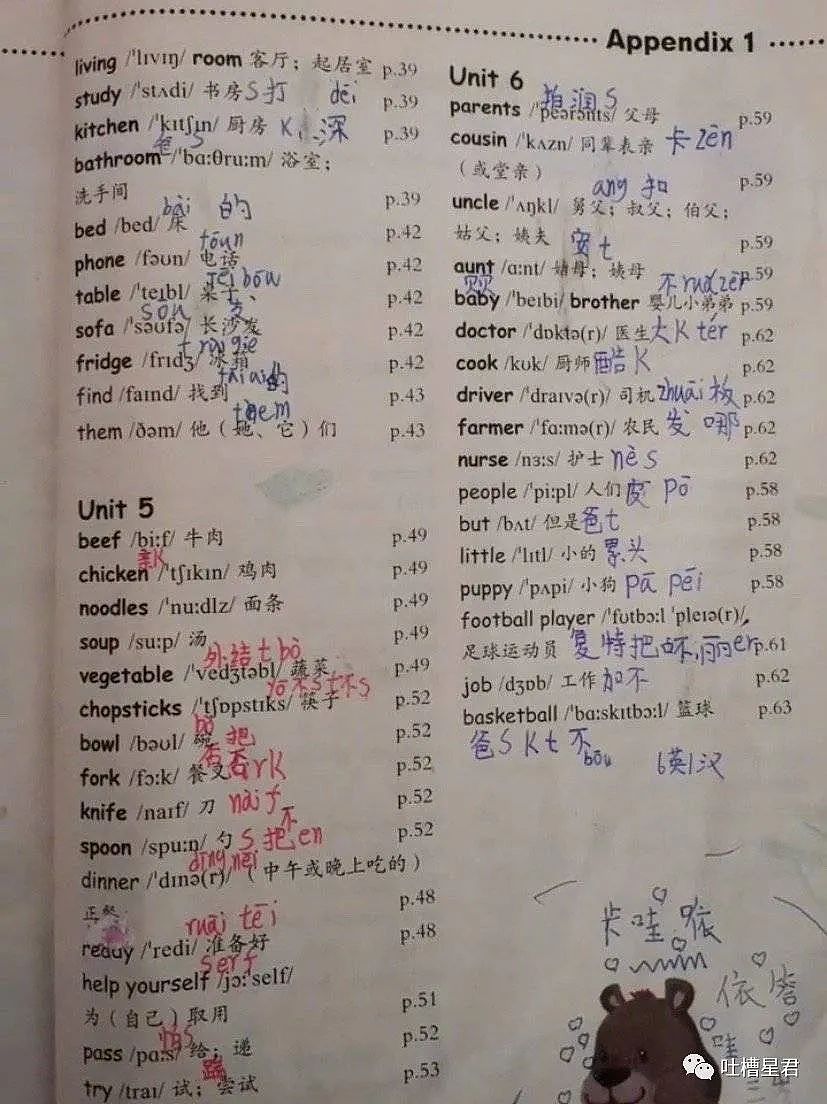 Appendix 1
living /ˈlɪvɪŋ/ room 客厅；起居室 p.39
study /ˈstʌdi/ 书房 S打 dēi p.39
kitchen /ˈkɪtʃɪn/ 厨房 K 深 p.39
爸 S
bathroom /ˈbɑːθruːm/ 浴室；
洗手间 p.39
bài 的
bed /bed/ 床 p.42
fōun
phone /fəʊn/ 电话 p.42
tēi bōu
table /ˈteɪbl/ 桌子 p.42
sōu 发
sofa /ˈsəʊfə/ 长沙发 p.42
fridge /frɪdʒ/ 冰箱 p.42
find /faɪnd/ 找到 p.43
them /ðəm/ 他（她、它）们 p.43
Unit 5
beef /biːf/ 牛肉 p.49
chicken /ˈtʃɪkɪn/ 鸡肉 p.49
noodles /ˈnuːdlz/ 面条 p.49
soup /suːp/ 汤 p.49
外结 t bō
vegetable /ˈvedʒtəbl/ 蔬菜 p.49
chopsticks /ˈtʃɒpstɪks/ 筷子 p.52
bō
bowl /bəʊl/ 碗 把 p.52
fork /fɔːk/ 餐叉 rK p.52
knife /naɪf/ 刀 nài f p.52
不
spoon /spuːn/ 勺 S 把 en p.52
dīng nēi
dinner /ˈdɪnə(r)/ （中午或晚上吃的）
正餐 p.48
ruāi tēi
ready /ˈredi/ 准备好 p.48
serf
help yourself /jɔːˈself/
为（自己）取用 p.51
怕S
pass /pɑːs/ 给；递 p.52
踹
try /traɪ/ 试；尝试 p.53
Unit 6
拍润S
parents /ˈpeərənts/ 父母 p.59
cousin /ˈkʌzn/ 同辈表亲 卡zēn
（或堂亲） p.59
ang 扣
uncle /ˈʌŋkl/ 舅父；叔父；伯父；
姑父；姨夫 p.59
安t
aunt /ɑːnt/ 婶母；姨母 p.59
贝贝 不ruāzēr
baby /ˈbeɪbi/ brother 婴儿小弟弟 p.59
doctor /ˈdɒktə(r)/ 医生 大K tér p.62
cook /kʊk/ 厨师 酷K p.62
driver /ˈdraɪvə(r)/ 司机 zhuāi 板 p.62
farmer /ˈfɑːmə(r)/ 农民 发 哪 p.62
nurse /nɜːs/ 护士 nès p.62
people /ˈpiːpl/ 人们 皮 pō p.58
but /bʌt/ 但是 爸t p.58
little /ˈlɪtl/ 小的 累头 p.58
puppy /ˈpʌpi/ 小狗 pā pēi p.58
football player /ˈfʊtbɔːl ˈpleɪə(r)/
足球运动员 复特把 丽er p.61
job /dʒɒb/ 工作 加不 p.62
basketball /ˈbɑːskɪtbɔːl/ 篮球 p.63
爸 S K t 不
bōu
6英1汉
卡哇依
依
哇
吐槽星君